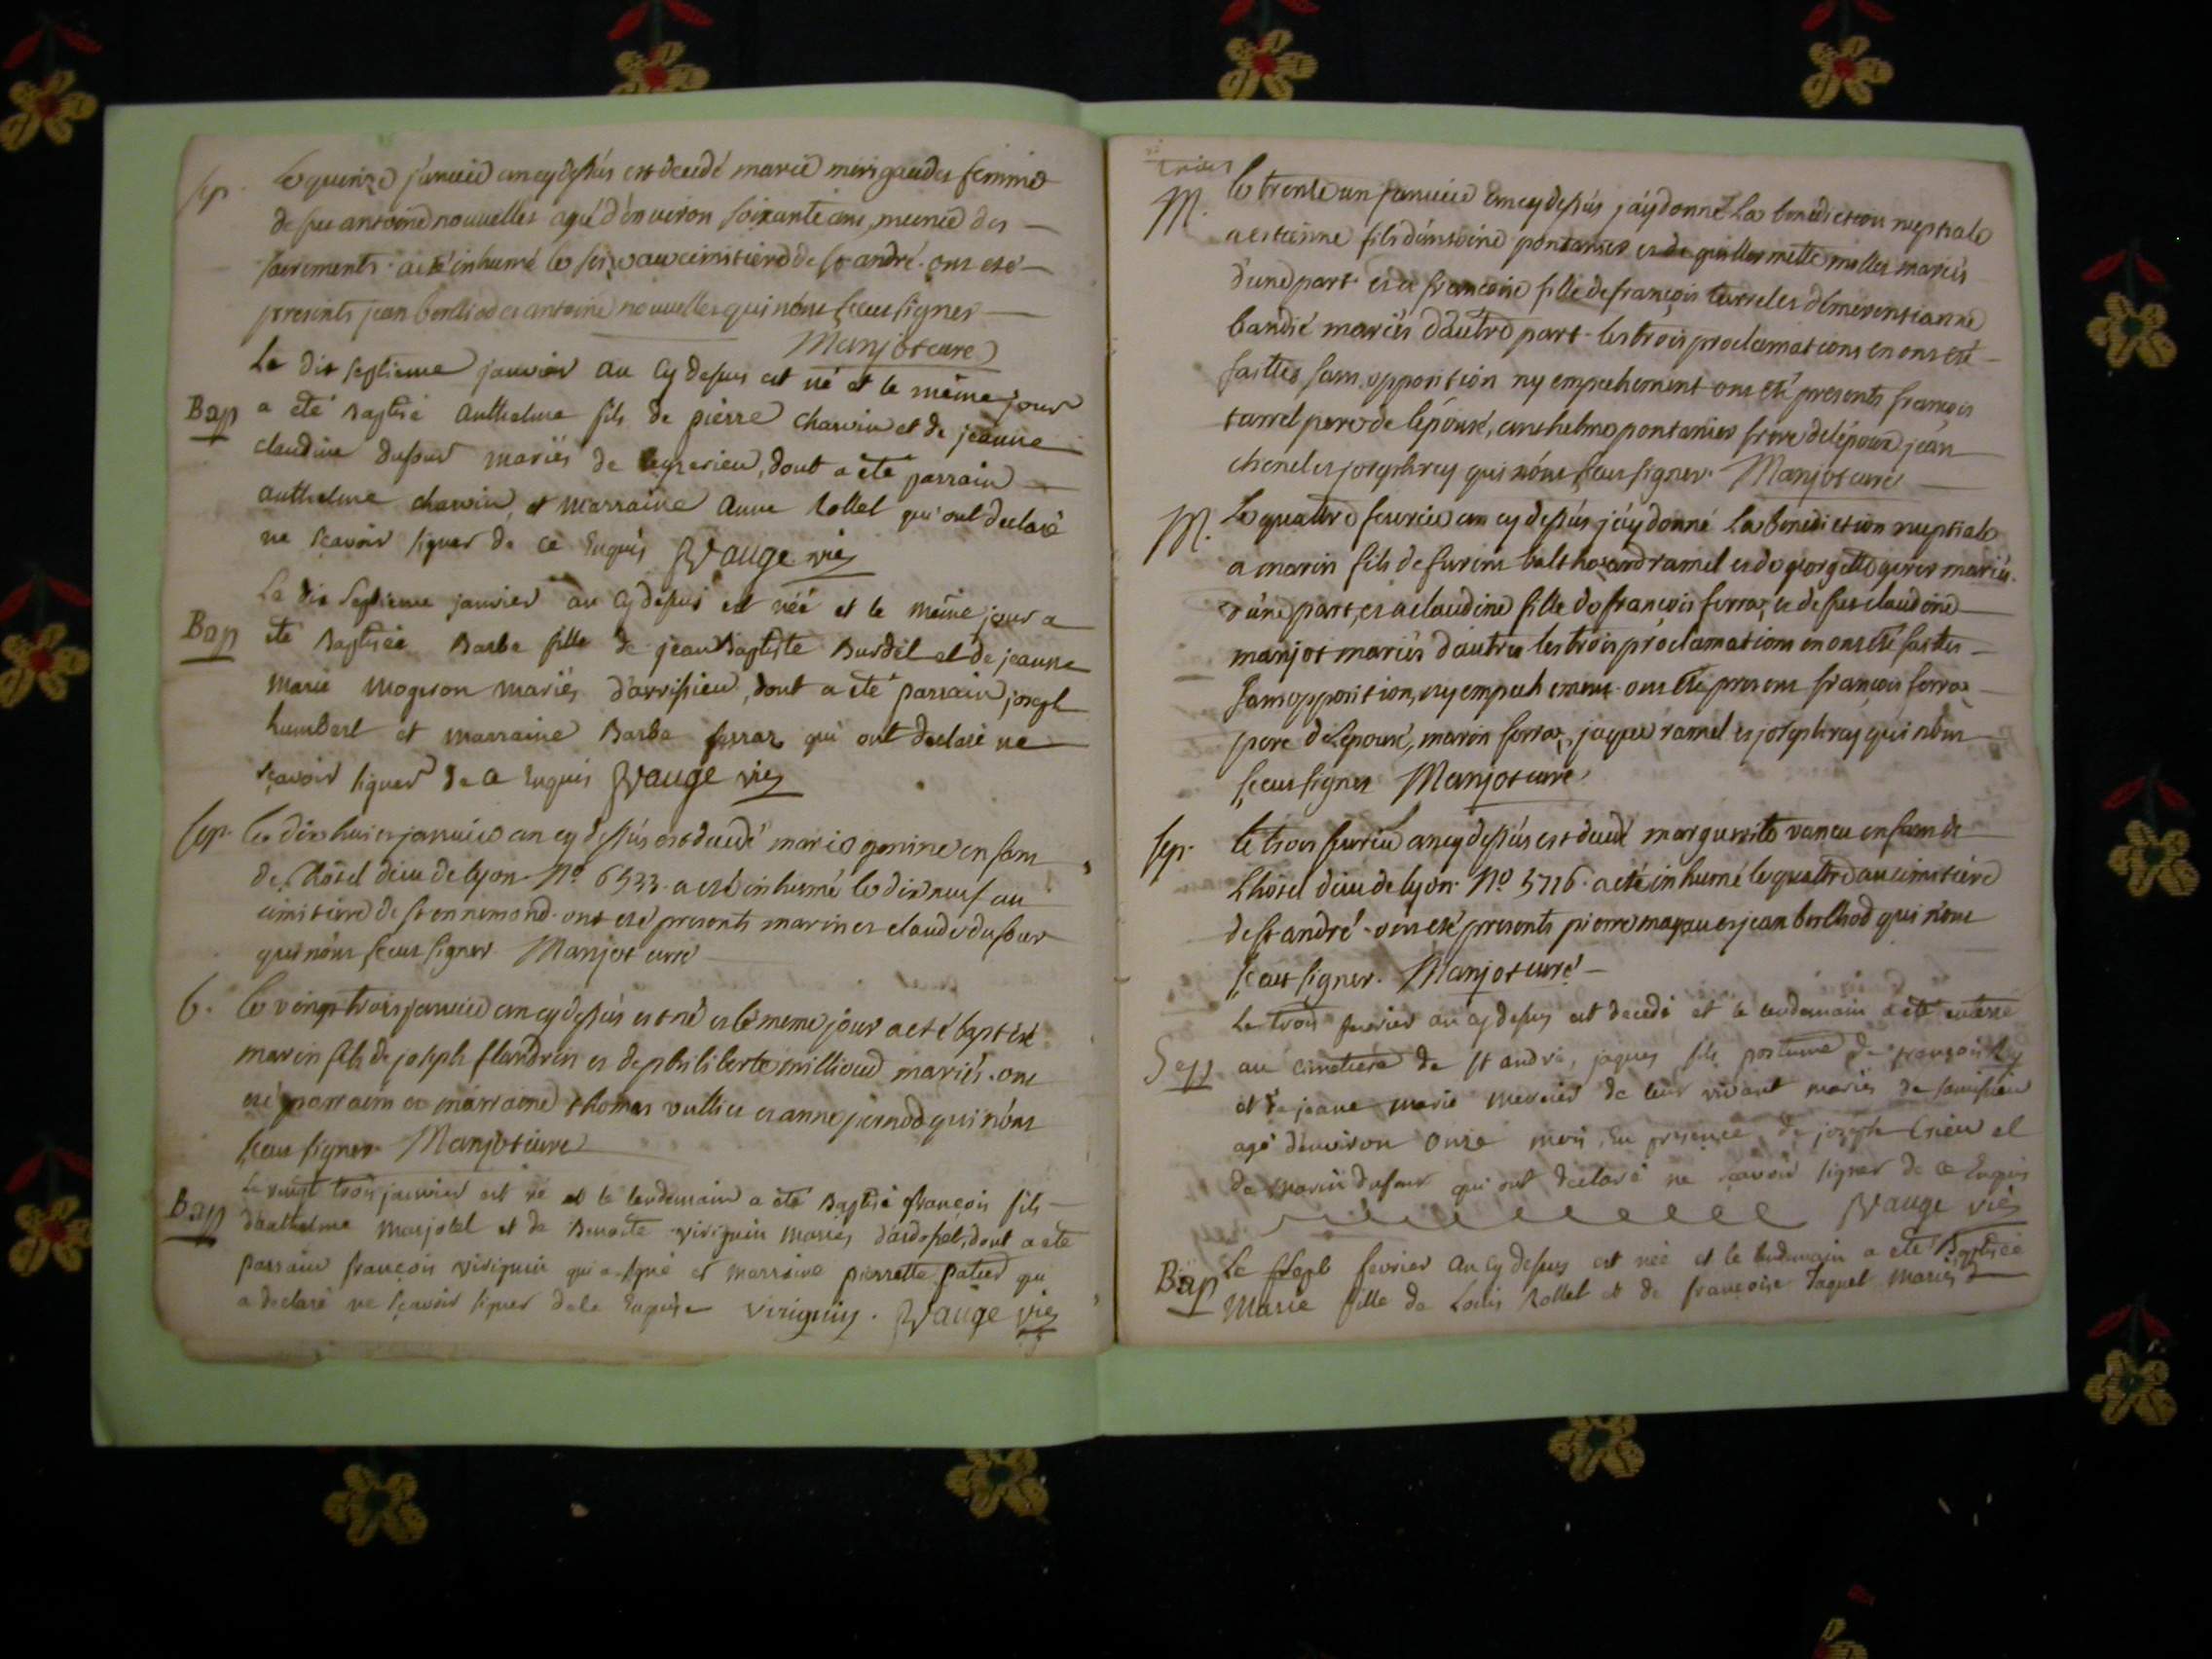 Sep. Le quinze janvier an cy dessus est decedé marie merigaudes femme
de feu antoine nouvelles agé d'environ soixante ans, munie des
sacrements. a eté inhumé le seize au cimitiere de st andré. ont eté
presents jean berlhod et antoine nouvelles qui n'ont sceu signer
Manjot curé
Le dix septieme janvier an cy dessus est né et le même jour
Bap a eté Baptisé anthelme fils de pierre charvin et de jeanne
claudine dufour mariés de leyzerieu, dont a été parrain
anthelme charvin, et marraine anne Rollet qui ont declaré
ne scavoir signer de ce enquis Vauge vic
Le dix septieme janvier an cy dessus est néé et le même jour a
Bap été Baptisée Barbe fille de jean Baptiste Burdel et de jeanne
marie mogeron mariés d'arrissieu, dont a été parrain joseph
humbert et marraine Barbe ferraz qui ont declaré ne
scavoir signer de ce enquis Vauge vic
Sep. Le dix huit janvier an cy dessus est decedé marie genine enfant
de l'hôtel dieu de lyon N° 6533. a eté inhumé le dix neuf au
cimitiere de st ennemond. ont eté presents marin et claude dufour
qui n'ont sceu signer. Manjot curé
b. Le vingt trois janvier an cy dessus est né et le meme jour a eté baptisé
marin fils de joseph flandrin et de philiberte millioud mariés. ont
eté parrain et marraine thomas vullier et anne jernod qui n'ont
sceu signer. Manjot curé
Le vingt trois janvier est né et le lendemain a été Baptisé françois fils
Bap d'anthelme manjotel et de Benoite virignin mariés d'ardosset, dont a été
parrain françois virignin qui a signé et marraine pierrette patier qui
a declaré ne scavoir signer de le enquise virignin. Vauge vic
trois
M. le trente un janvier an cy dessus j'ay donné La benediction nuptiale
a estienne fils d'antoine pontanier et de guillermette mollex mariés
d'une part et a françoise fille de françois tarrel et d'emerentianne
bandié mariés d'autre part. les trois proclamations en ont eté
faittes sans opposition ny empechement ont eté presents françois
tarrel pere de l'épouse, anthelme pontanier frere de l'époux jean
chenel et joseph rey qui n'ont sceu signer. Manjot curé
M. Le quattre fevrier an cy dessus j'ay donné la benediction nuptiale
a marin fils de furent balthazard ramel et de georgette girer mariés.
d'une part, et a claudine fille de françois ferraz et de feue claudine
manjot mariés d'autre les trois proclamations en ont eté faites
sans opposition, ny empechement. ont eté presens françois ferraz
pere de l'epouse, marin ferraz, jaque ramel et joseph ray qui n'ont
sceu signer Manjot curé
Sep. Le trois fevrier an cy dessus est decedé marguerite vaneu enfant de
L'hôtel dieu de lyon. N° 5716. a eté inhumé le quattre au cimitiere
de st andré. ont eté presents pierre magau et jean berlhod qui n'ont
sceu signer. Manjot curé
Le trois fevrier an cy dessus est decedé et le lendemain a été enterré
Sep. au cimetiere de st andré, jaques fils postume de françois Rey
et de jeane marie mercier de leur vivant mariés de
agé d'environ onze mois, en presence de joseph Crieu et
de marin dufour qui ont declaré ne scavoir signer de ce enquis
Vauge vic
Bap Le sept fevrier an cy dessus est née et le lendemain a été Baptisée
Marie fille de Louis Rollet et de françoise Jaquet mariés d